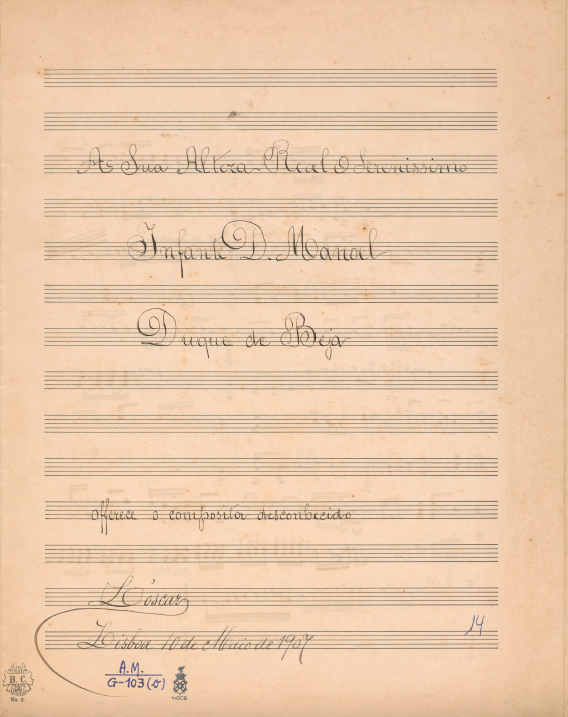 A Sua Alteza Real O Serenissimo
Infante D. Manoel
Duque de Beja
offerece o compositor desconhecido
L'Óscar
Lisboa 10 de Maio de 1907
14
A.M.
G-103(o)
B. C.
No. 2.